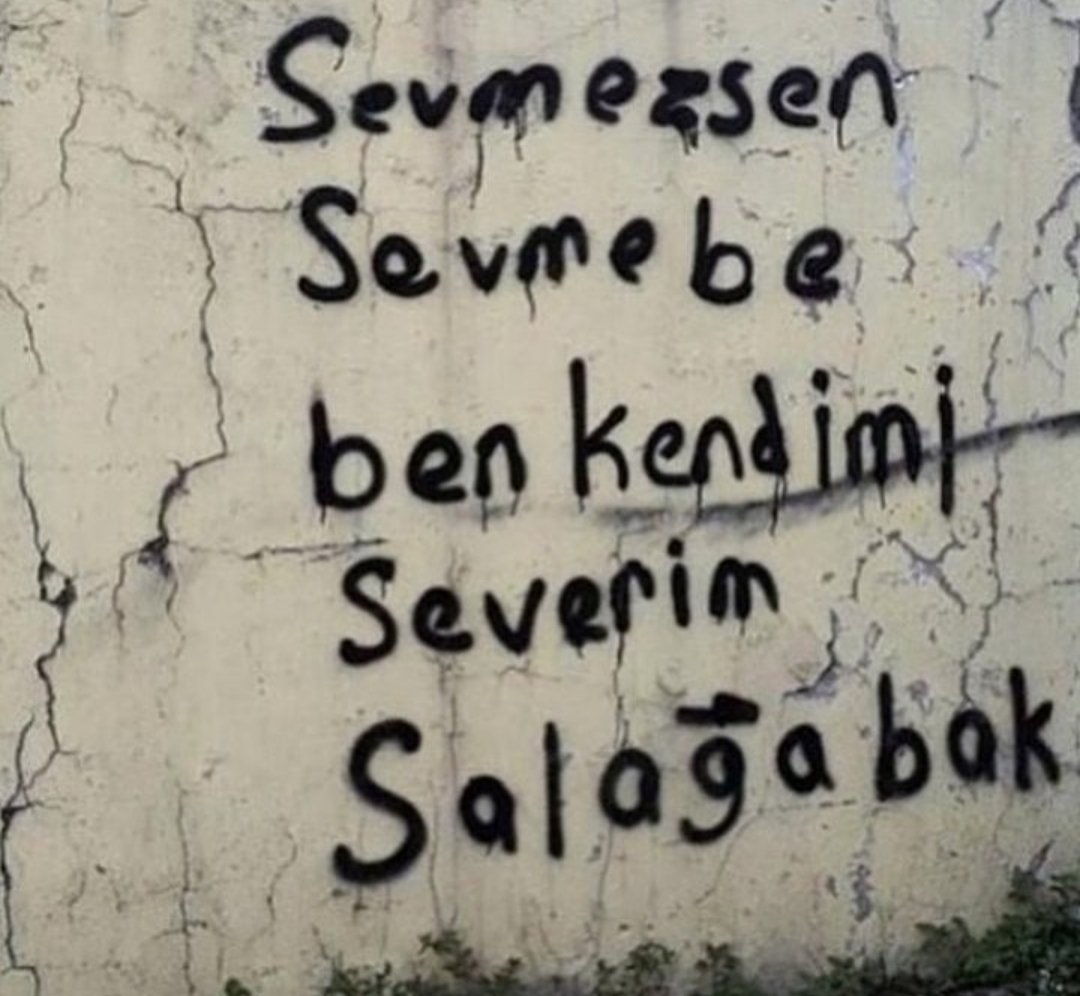 Sevmezsen
Sevme be
ben kendimi
Severim
Salağa bak